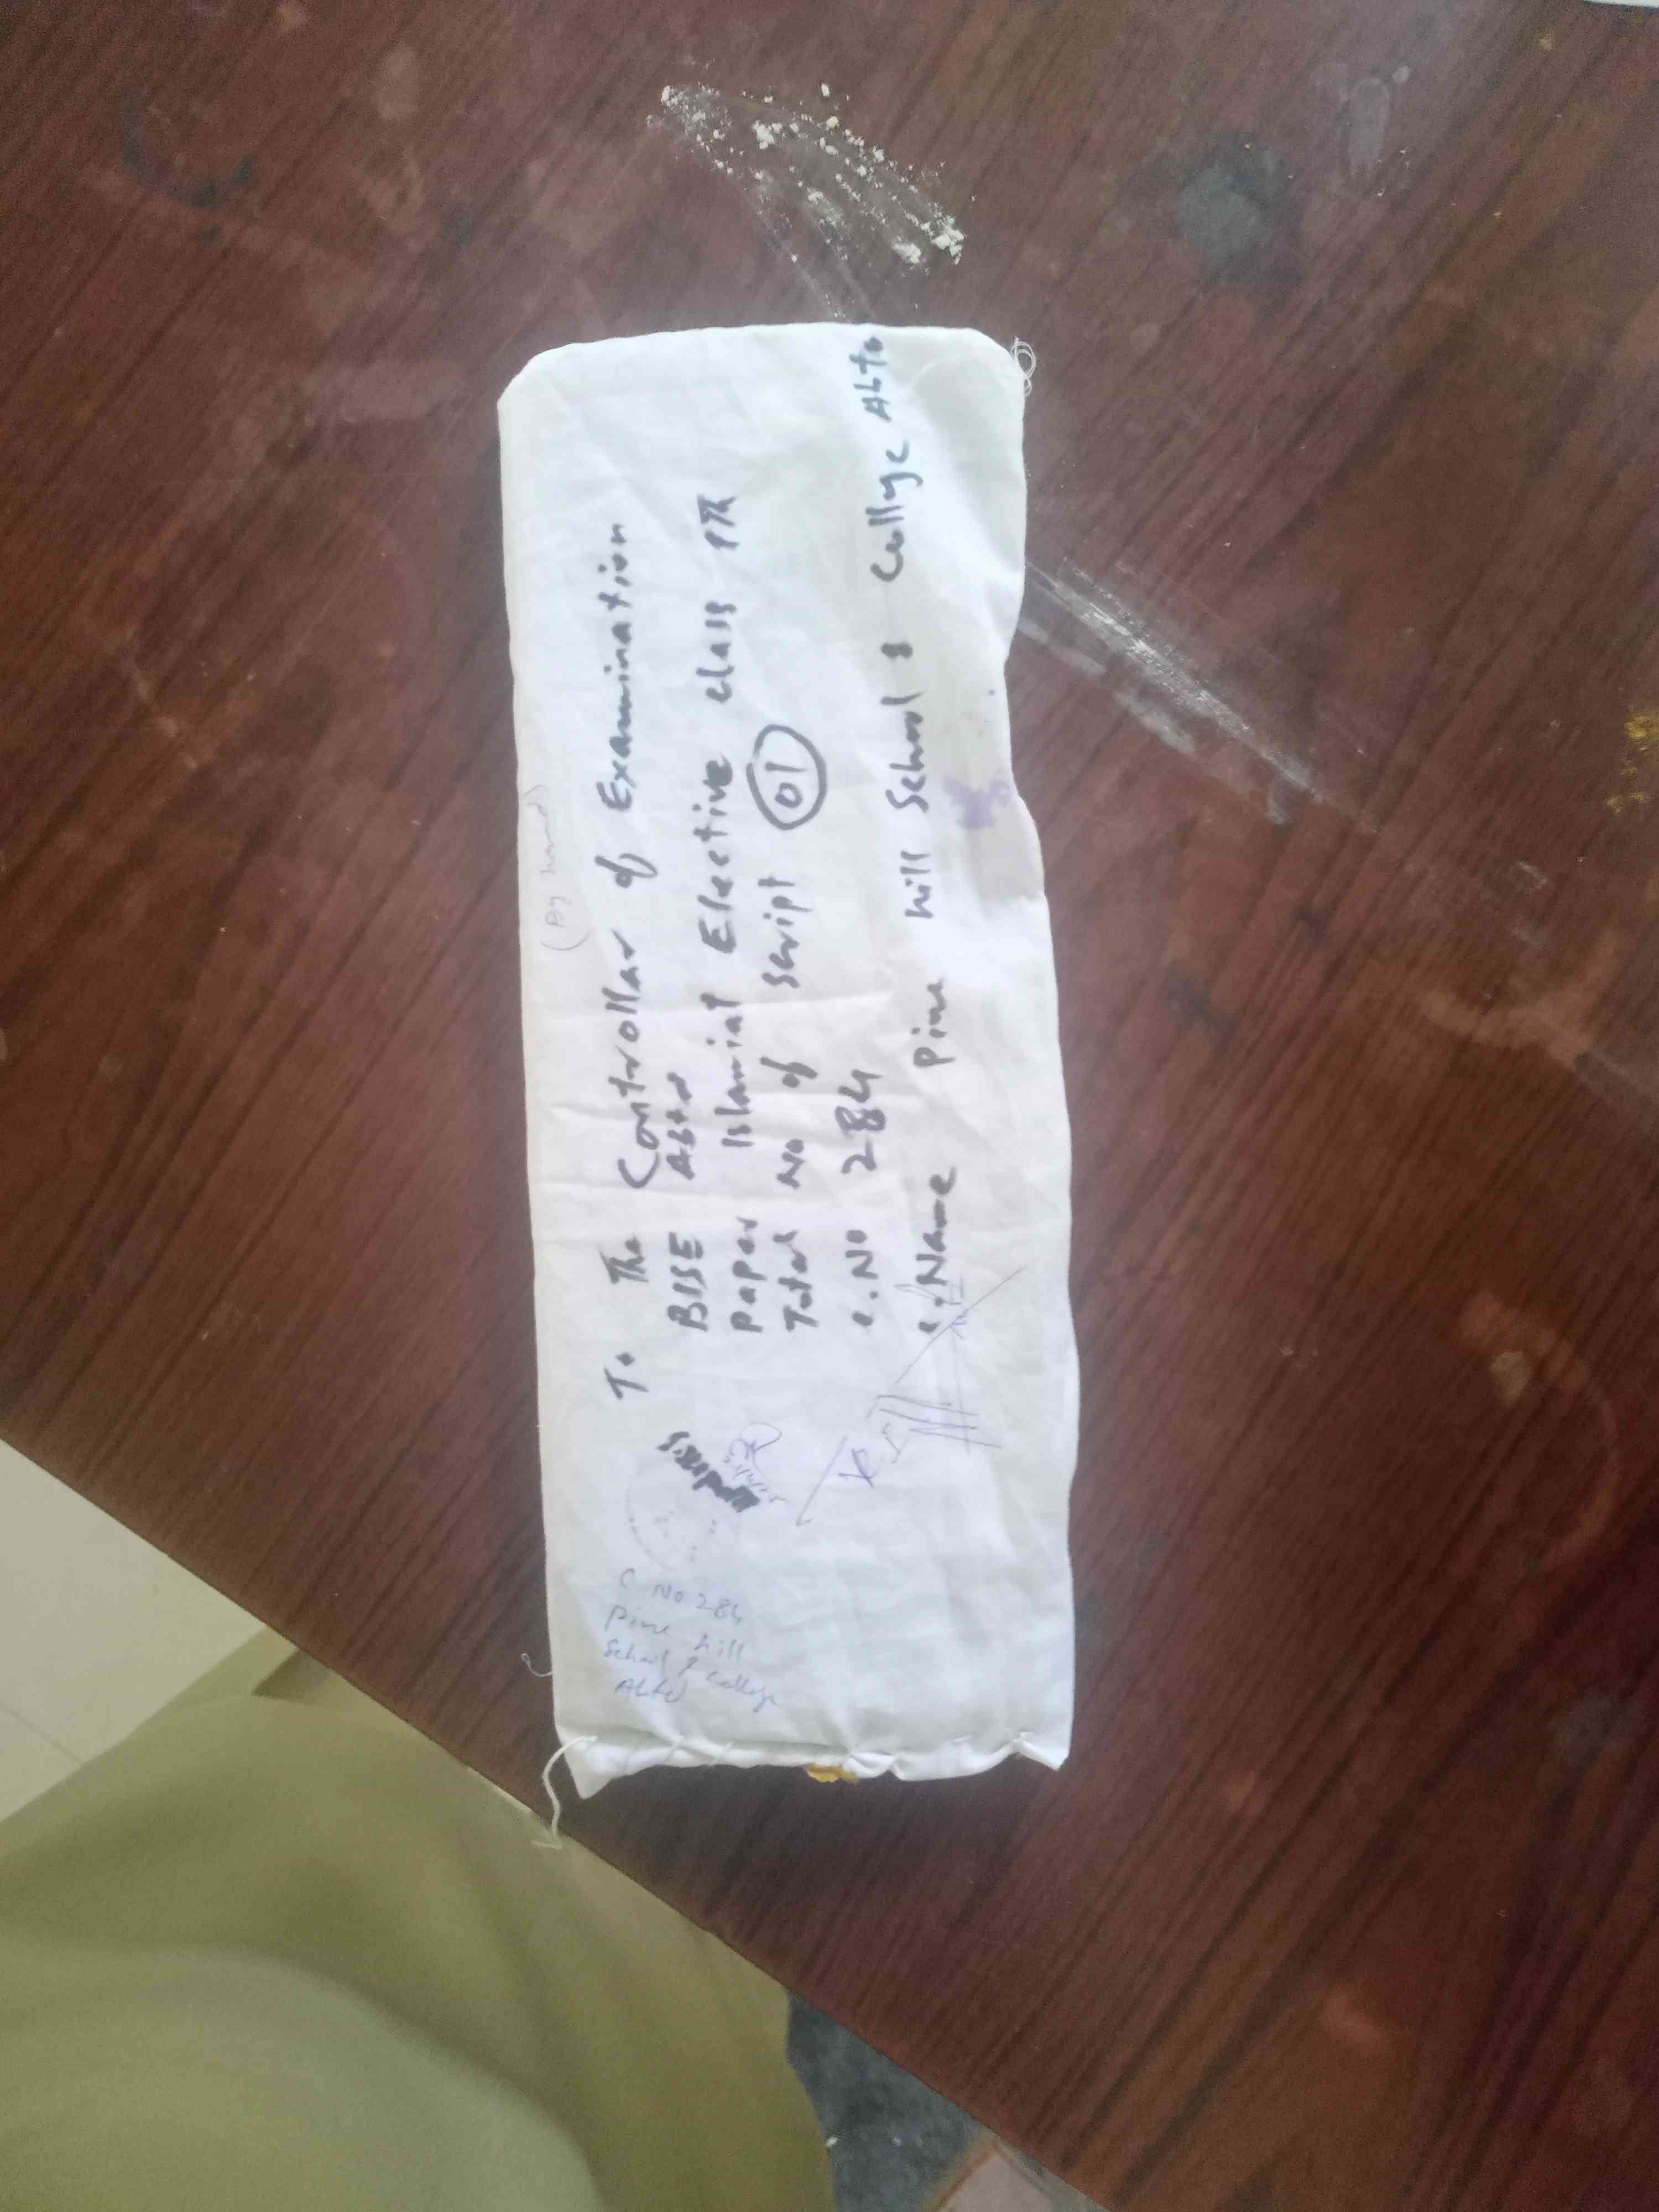 (By hand)
To The Controllar of Examination
BISE Abtd
Paper Islamiat Elective class 9th
Total No of script 01
C.No 284
C.Name Pine hill School & College Abtd
C No 284
Pine hill
School & College
Abtd